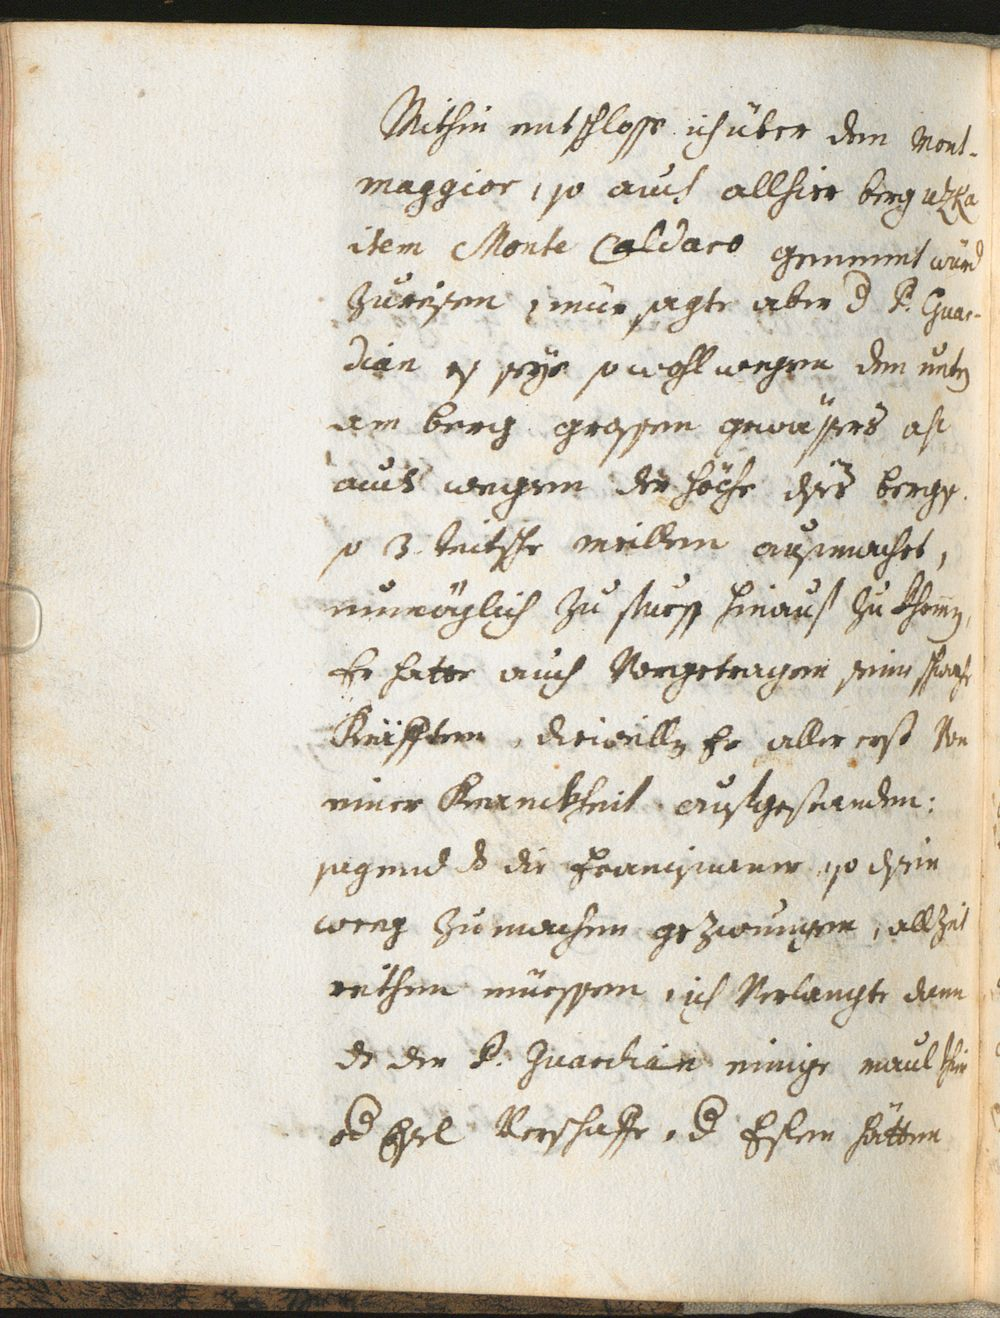 Mithin entschloss ich über den Mont-
maggior, so auch allhier berg uzka
item Monte Caldaro genennet würd
Zu reisen, mür sagte aber d P. Guar-
dian es seye sowohl wegen den unten
am berg grossen gewässers als
auch wegen der Höhe dises bergs
so 3 teitsche meillen ausmachet,
unmöglich zu fuess hinauf zu khomen,
Er hatte auch Vorgetragen seine schwache
Kräfften, dieweillen Er aller erst Von
einer Kranckheit aufgestanden:
sagend ds die Franciscaner, so disen
weeg zu machen gezwungen, allzeit
reithen müessen, ich Verlangte dann
ds der P. Guardian einige maulthier
od Esel Verschaffe, d Eslen hätten